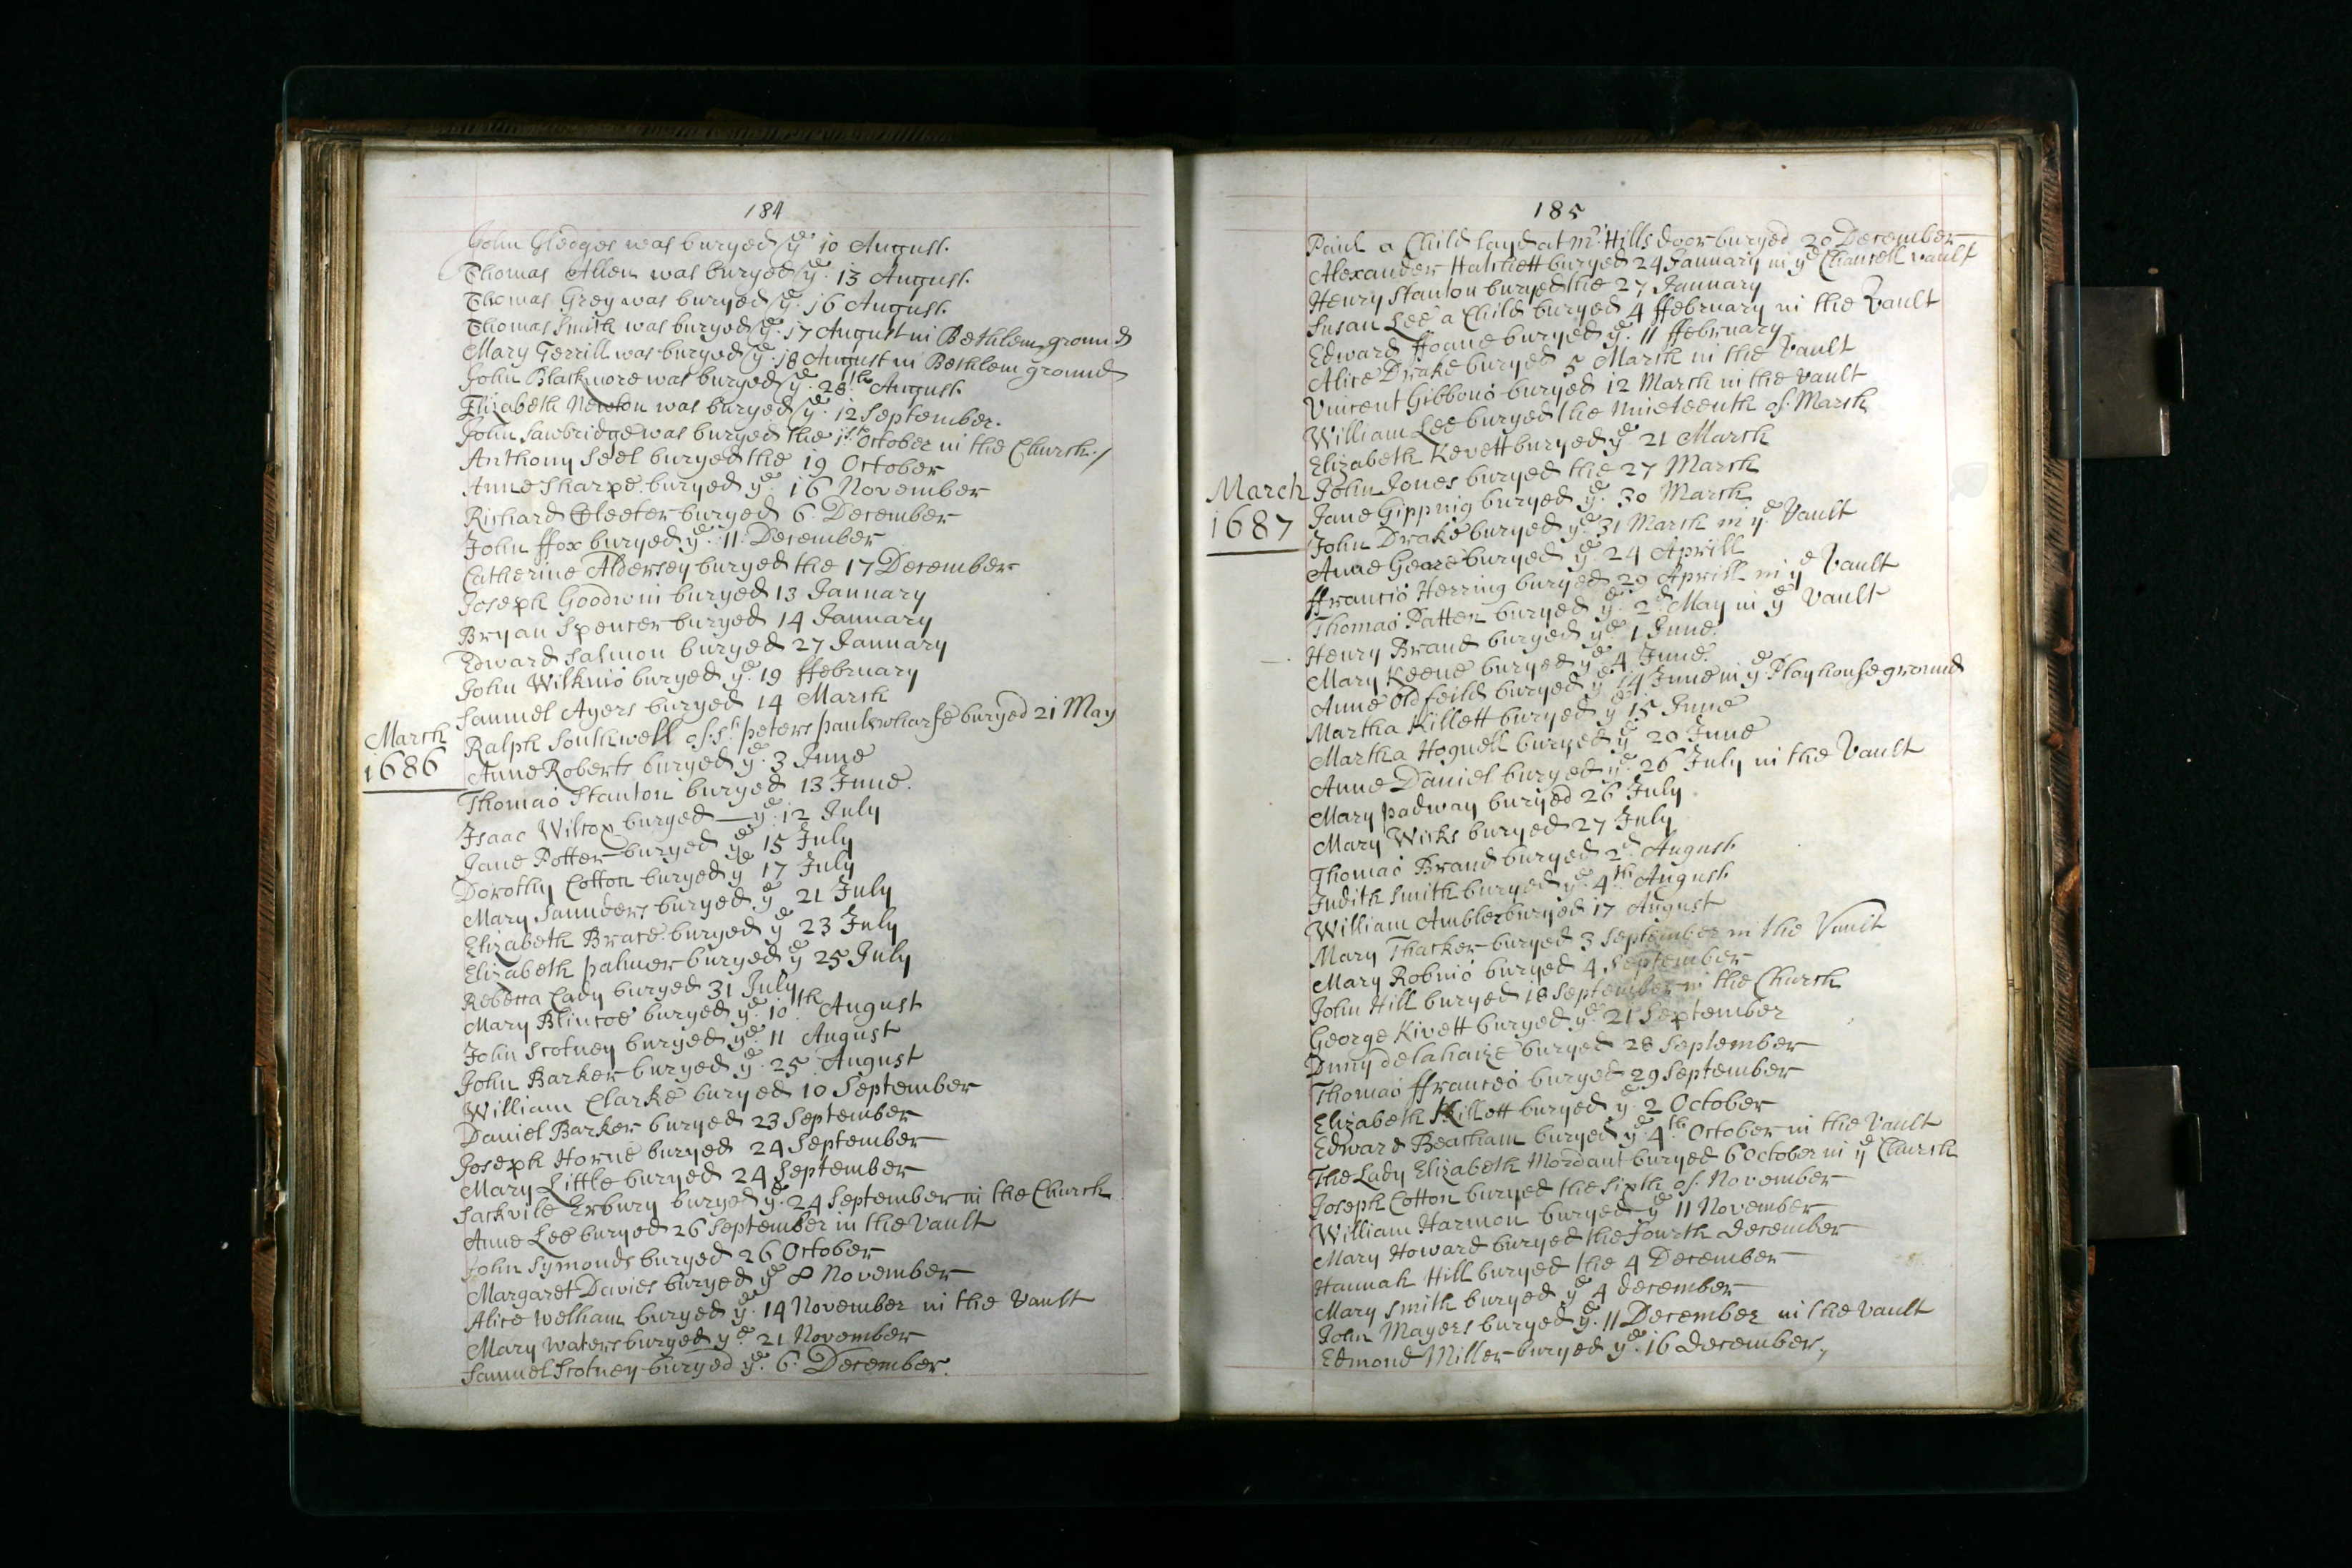 184
John Gledges was buryed ye 10 August.
Thomas Allen was buryed ye 13 August.
Thomas Grey was buryed ye 16 August.
Thomas Smith was buryed ye 17 August in Bethlem ground
Mary Terrill was buryed ye 18 August in Bethlem ground
John Blackmore was buryed ye 28th August.
Elizabeth Newton was buryed ye 12 September.
John Sawbridge was buryed the 1st October in the Church./
Anthony Seel buryed the 19 October
Anne Sharpe buryed ye 16 November
Richard buryed 6 December
John ffox buryed ye 11 December
Catherine Aldersey buryed the 17 December
Joseph Goodwin buryed 13 January
Bryan Spencer buryed 14 January
Edward Salmon buryed 27 January
John Wilkins buryed ye 19 ffebruary
Samuel Ayers buryed 14 March
March 1686
Ralph Southwell of St peters paulswharfe buryed 21 May
Anne Roberts buryed ye 3 June
Thomas Stanton buryed 13 June.
Isaac Wilcox buryed — ye 12 July
Jane Potter buryed ye 15 July
Dorothy Cotton buryed ye 17 July
Mary Saunders buryed ye 21 July
Elizabeth Brace buryed ye 23 July
Elizabeth palmer buryed ye 25 July
Rebecca Cady buryed 31 July
Mary Blincoe buryed ye 10th August
John Scotney buryed ye 11 August
John Barker buryed ye 25 August
William Clarke buryed 10 September
Daniel Barker buryed 23 September
Joseph Horne buryed 24 September
Mary Little buryed 24 September
Sackvile Erbury buryed ye 24 September in the Church
Anne Lee buryed 26 September in the Vault
John Symonds buryed 26 October
Margaret Davies buryed ye 8 November
Alice Welham buryed ye 14 November in the Vault
Mary Waters buryed ye 21 November
Samuel Scotney buryed ye 6 December.
185
Paul a Child layd at Mr Hills door buryed 20 December
Alexander Hatchett buryed 24 January in ye Chancell vault
Henry Stanton buryed the 27 January
Susan Lee a Child buryed 4 ffebruary in the Vault
Edward ffoane buryed ye 11 ffebruary
Alice Drake buryed 5 March in the Vault
Vincent Gibbons buryed 12 March in the Vault
William Lee buryed the Nineteenth of March
Elizabeth Kevett buryed ye 21 March
March 1687
John Jones buryed the 27 March
Jane Gipping buryed ye 30 March
John Drake buryed ye 31 March in ye Vault
Anne Geare buryed ye 24 Aprill
ffrancis Herring buryed 29 Aprill in ye Vault
Thomas Patten buryed ye 2d May in ye Vault
Henry Brand buryed ye 1 June.
Mary Keene buryed ye 4 June.
Anne Oldfeild buryed ye 14 June in ye Playhouse ground
Martha Killett buryed ye 15 June
Martha Hognell buryed ye 20 June
Anne Daniel buryed ye 26 July in the Vault
Mary padway buryed 26 July
Mary Wicks buryed 27 July
Thomas Brand buryed 2d August
Judith Smith buryed ye 4th August
William Ambler buryed 17 August
Mary Thacker buryed 3 September in the Vault
Mary Robins buryed 4 September
John Hill buryed 18 September in the Church
George Kivett buryed ye 21 September
delahaize buryed 28 September
Thomas ffrances buryed 29 September
Elizabeth Killett buryed ye 2 October
Edward Beacham buryed ye 4th October in the Vault
The Lady Elizabeth Mordant buryed 6 October in ye Church
Joseph Cotton buryed the Sixth of November
William Harmon buryed ye 11 November
Mary Howard buryed the fourth December
Hannah Hill buryed the 4 December
Mary Smith buryed ye 4 december
John Mayers buryed ye 11 December in the Vault
Edmond Miller buryed ye 16 december,